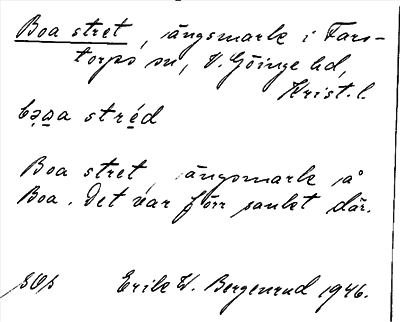 Boa stret, ängsmark i Fars-
torps sn, V. Göinge hd,
Krist. l.
bəa̤a stré̱d
Boa stret, ängsmark på
Boa. Det var förr sankt där.
SOs Erik W. Bergenrud 1946.